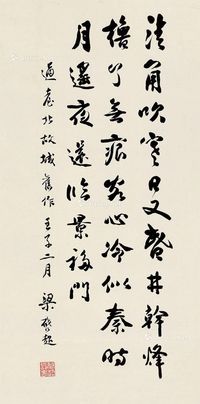 清角吹寒日又昏井幹烽
櫓了無痕客心冷似秦時
月遙夜還臨景福門
過臺北故城舊作 壬子二月 梁啟超